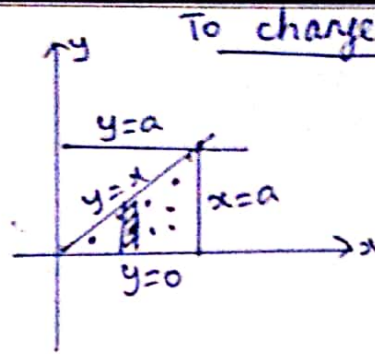 To change
y
y=a
y=x
x=a
x
y=0